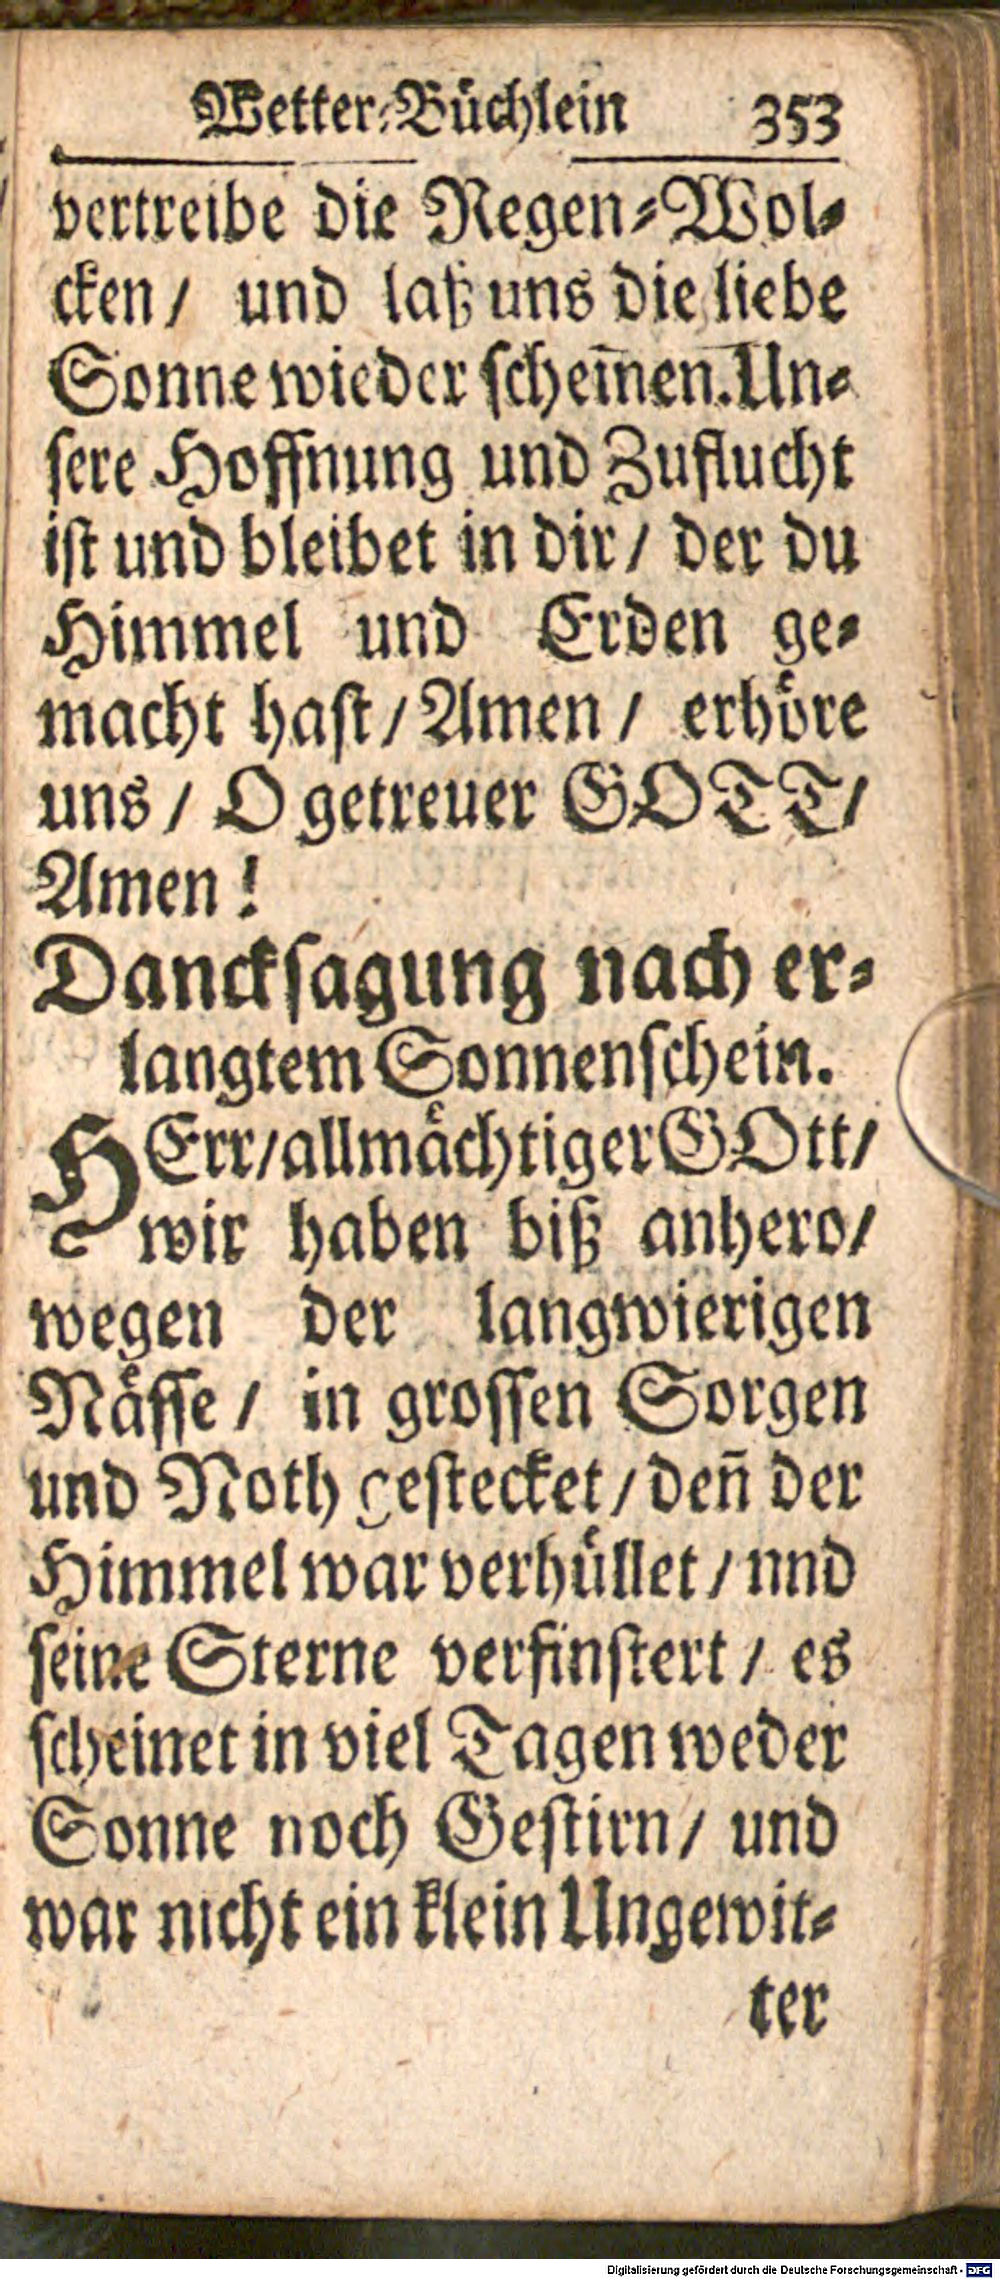 Wetter-Büchlein 353
vertreibe die Regen-Wol-
cken / und laß uns die liebe
Sonne wieder scheinen. Un-
sere Hoffnung und Zuflucht
ist und bleibet in dir / der du
Himmel und Erden ge-
macht hast / Amen / erhöre
uns / O getreuer GOTT /
Amen!
Dancksagung nach er-
langtem Sonnenschein.
HErr / allmächtiger GOtt /
wir haben biß anhero /
wegen der langwierigen
Nässe / in grossen Sorgen
und Noth gestecket / den̄ der
Himmel war verhüllet / nnd
seine Sterne verfinstert / es
scheinet in viel Tagen weder
Sonne noch Gestirn / und
war nicht ein klein Ungewit-
ter
Digitalisierung gefördert durch die Deutsche Forschungsgemeinschaft - DFG